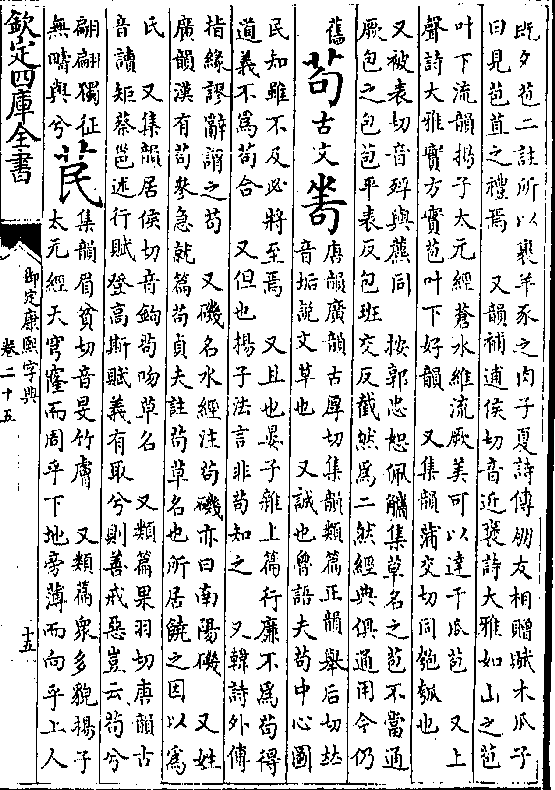 既夕苞二註所以裹羊豕之肉子夏詩傳朋友相贈賦木瓜子
曰見苞苴之禮焉　又韻補逋侯切音近裒詩大雅如山之苞
叶下流韻揚子太元經蒼木維流厥美可以達于瓜苞　又上
聲詩大雅實方實苞叶下好韻　又集韻蒲交切同匏瓠也
又被表切音殍與藨同　按郭忠恕佩觿集草名之苞不當通
厥包之包苞平表反包班交反截然爲二然經典俱通用今仍
舊
苟古文𦱔唐韻廣韻古厚切集韻類篇正韻舉后切𠀤
音垢說文草也　又誠也魯語夫苟中心圖
民知雖不及必將至焉　又且也晏子雜上篇行廉不爲苟得
道義不爲苟合　又但也揚子法言非苟知之　又韓詩外傳
指緣謬辭謂之苟　又磯名水經注苟磯亦曰南陽磯　又姓
廣韻漢有苟參急就篇苟貞夫註苟草名也所居饒之因以爲
氏　又集韻居侯切音鉤苟吻草名　又類篇果羽切唐韻古
音讀矩蔡邕述行賦登高斯賦義有取兮則善戒惡豈云苟兮
翩翩獨征無疇與兮
苠集韻眉貧切音旻竹膚　又類篇衆多貌揚子
太元經天穹窿而周乎下地旁薄而向乎上人
欽定四庫全書
御定康熙字典
卷二十五
十五